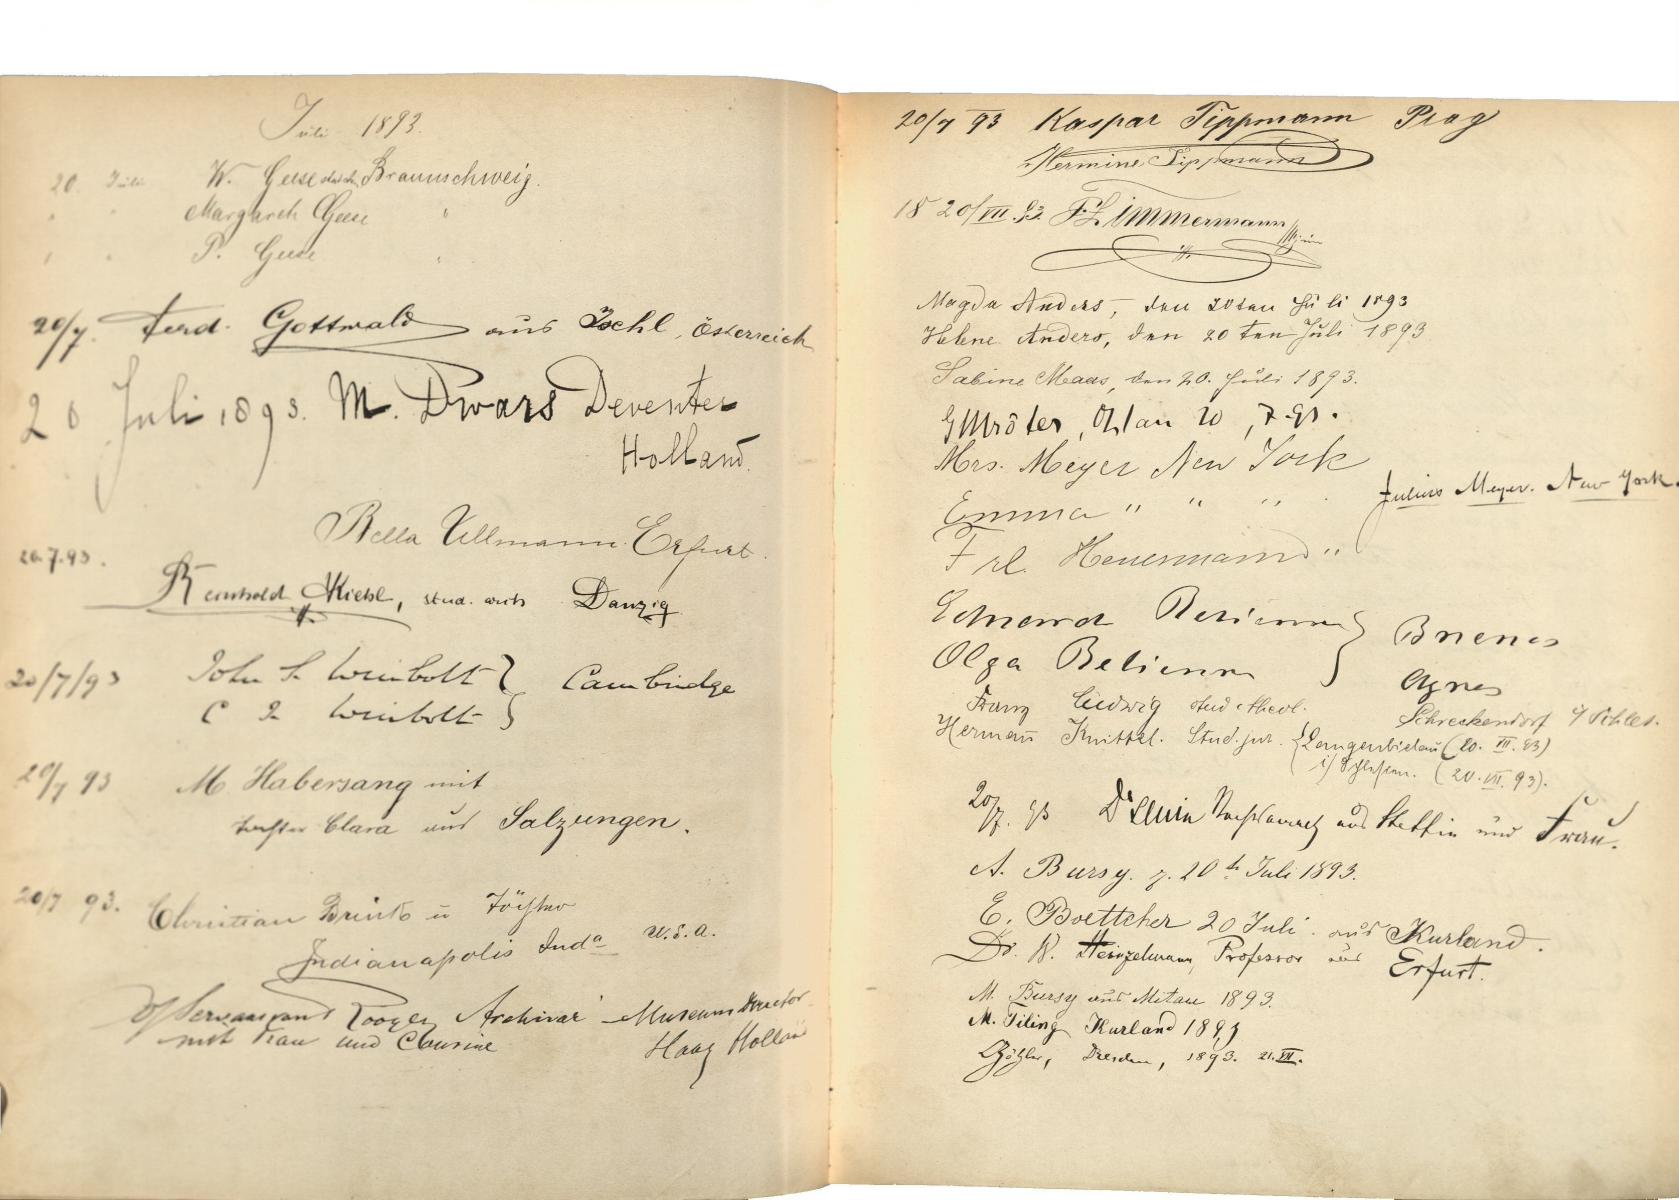 Juli 1893.
20. Juli W. Geese Braunschweig.
" " Margareth Geese "
" " P. Geese "
20/7. Ferd. Gottwald aus Ischl, Österreich
20 Juli 1893. M. Dwars Deventer
Holland.
Bella Ullmann. Erfurt.
20.7.93.
Reinhold Miehl, stud. arch Danzig
20/7/93 John S. Wimbolt } Cambridge
C Wimbolt
20/7 93 M Habersang mit
Tochter Clara aus Salzungen.
20/7 93. Christian Brink u Töchter
Indianapolis Inda U.S.A.
Servaas van Rooyen Archivar - Museums Director
mit Frau und Cousine Haag Holland
20/7 93 Kaspar Tippmann Prag
Hermine Tippmann
18 20/VII. 93. F. Zimmermann
Magda Anders, den 20ten Juli 1893
Helene Anders, den 20ten Juli 1893
Sabine Maas, den 20. Juli 1893.
20, 7. 93.
Mrs. Meyer New York
Julius Meyer. New York.
Emma " " "
Frl. Heuermann "
Edmond }
Olga
Agnes
Franz Ludwig stud. theol. Schreckendorf i/ Schles.
Herman Knittel. Stud. jur. { Langenbielau (20. VII. 93)
i/ Schlesien. (20. VII. 93).
20/7. 93 Dr aus Stettin und Frau.
A. Bursy. z. 20ten Juli 1893.
E. Boettcher 20 Juli. aus Kurland.
Dr. W. Heinzelmann, Professor aus Erfurt.
M. Bursy aus Mitau 1893.
M. Tiling Kurland 1893
Dresden, 1893. 21. VII.